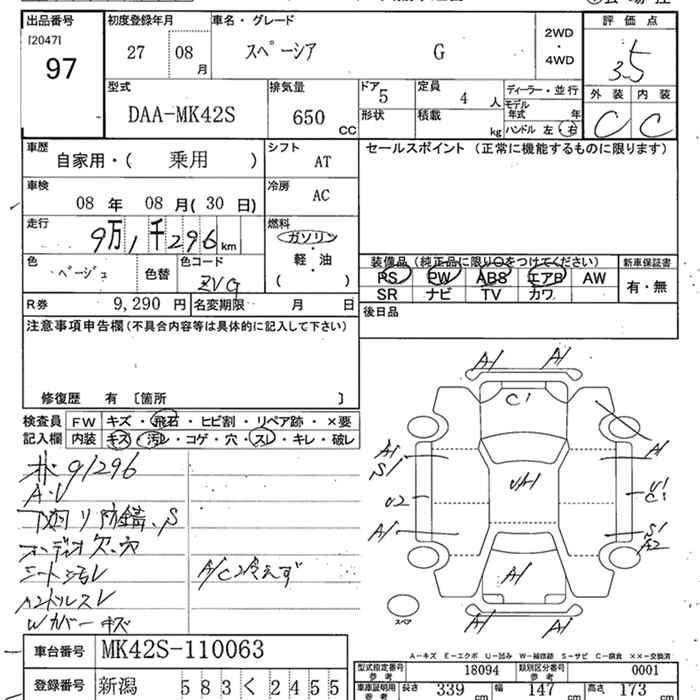 出品番号 初度登録年月 車名・グレード 評価点
[2047] 97
27 08 月 スペーシア G
2WD ・ 4WD
3.5
外装 内装
C C
型式 DAA-MK42S
排気量 650 CC
ドア 5 定員 4 人
形状 積載 kg
ディーラー・並行
モデル年式 年
ハンドル 左 右
車歴 自家用・( 乗用 )
シフト AT
セールスポイント (正常に機能するものに限ります)
車検 08 年 08 月(30 日)
冷房 AC
走行 9万1千296 km
燃料 ガソリン ・ 軽・油 ( )
色 ベージュ 色替 色コード ZVG
装備品 (純正品に限り○をつけてください) 新車保証書
PS PW ABS エアB AW 有・無
SR ナビ TV カワ
R券 9,290 円 名変期限 月 日
後日品
注意事項申告欄(不具合内容等は具体的に記入して下さい)
修復歴 有 [箇所 ]
検査員記入欄
FW キズ・飛石・ヒビ割・リペア跡・×要
内装 キズ・汚レ・コゲ・穴・スレ・キレ・破レ
91296
A.V
下廻リ防錆、S
オーディオ欠、穴
シート汚レ
A/C冷えず
ハンドルスレ
Wカバーキズ
A1 A1
C1
A1 S1
A1
U2
UA1
U1 C1
A1
S1 A2
A1
A1 A1
スペア
A－キズ E－エクボ U－凹み W－補修跡 S－サビ C－腐食 XX－交換済
車台番号 MK42S-110063
登録番号 新潟 583 く 2455
型式指定番号 参考 18094 類別区分番号 参考 0001
車庫証明用 参考 長さ 339 cm 幅 147 cm 高さ 173 cm